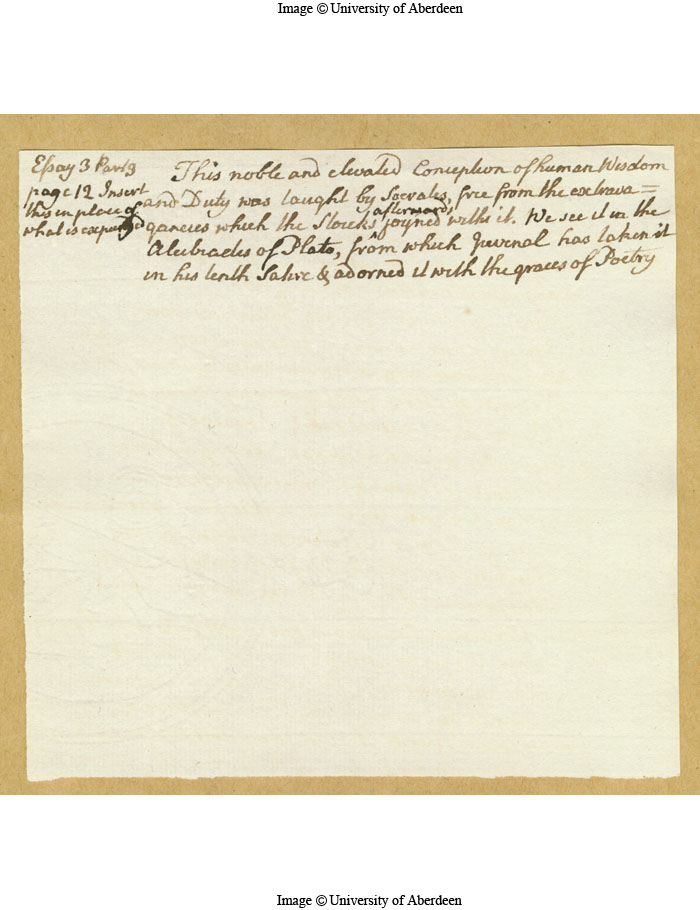 Image © University of Aberdeen
Essay 3 Part 3
page 12 Insert
this in place of
what is expunged
This noble and elevated Conception of human Wisdom
and Duty was taught by Socrates, free from the extrava=
gancies which the Stoicks ^ afterwards joyned with it. We see it in the
Alcibiades of Plato, from which Juvenal has taken it
in his tenth Satire & adorned it with the graces of Poetry
Image © University of Aberdeen